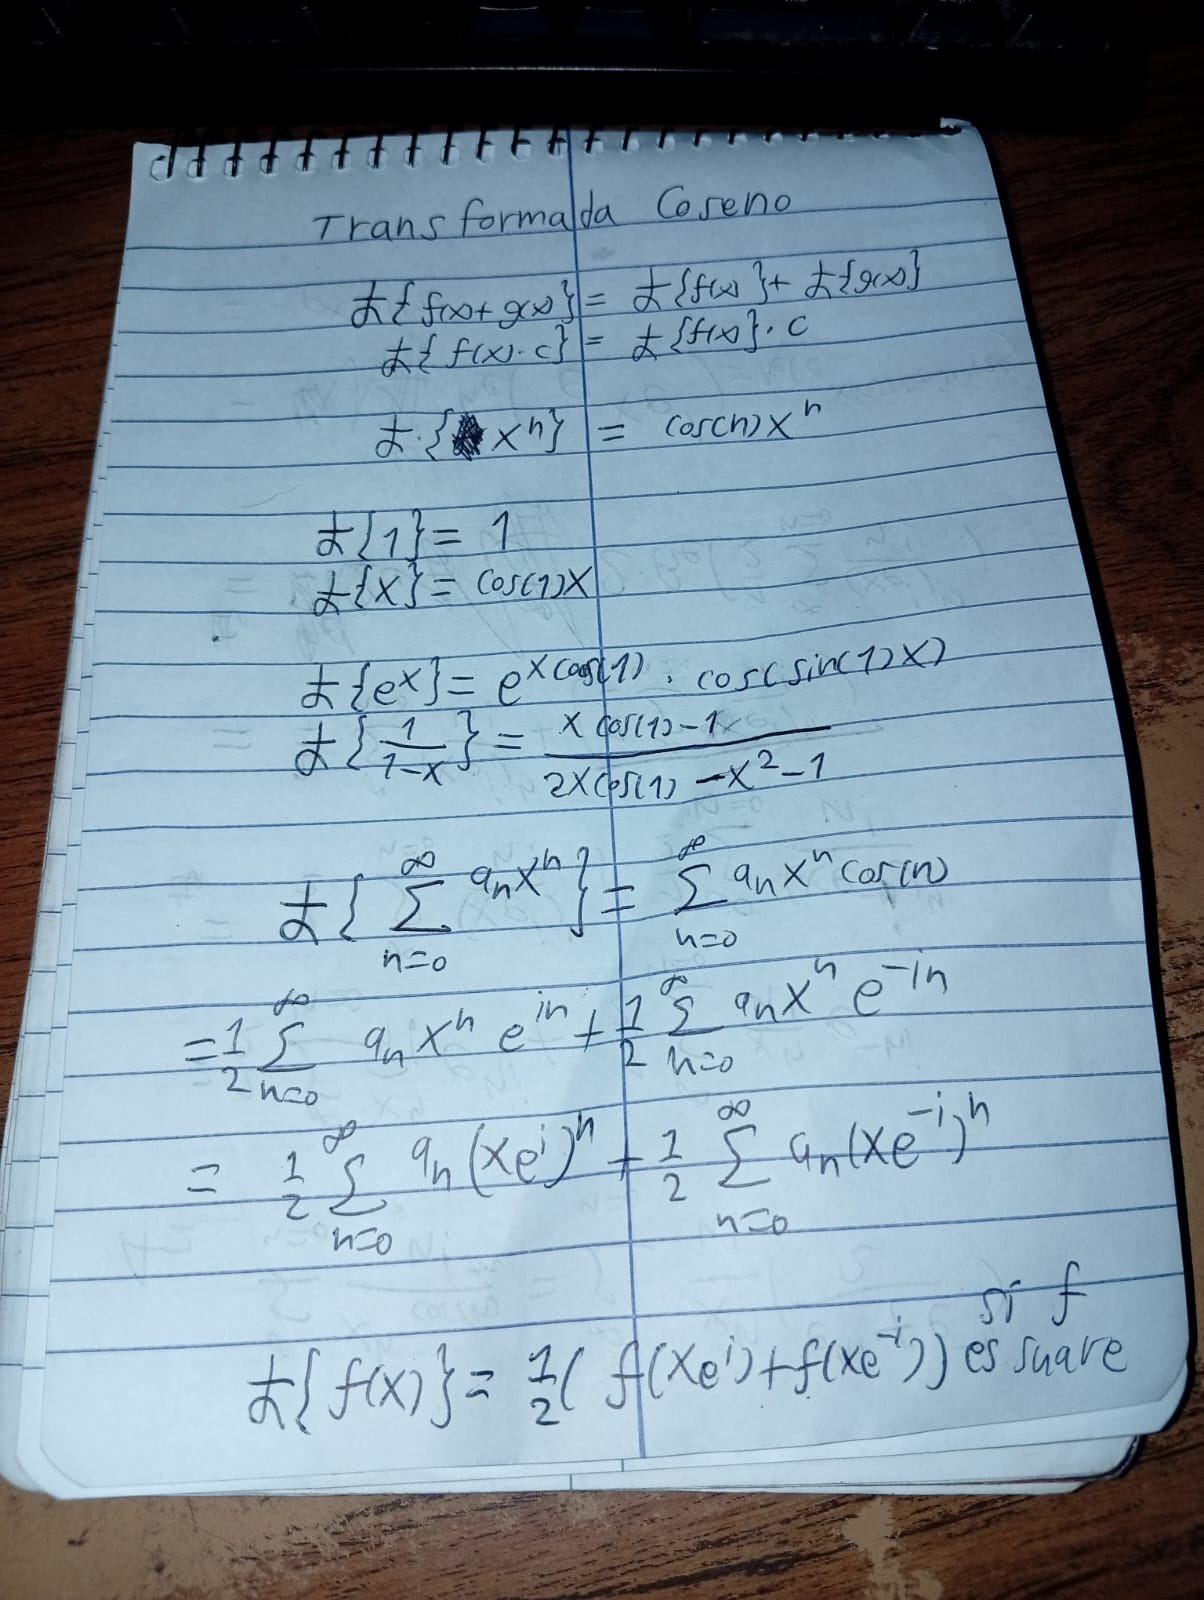 Transformada Coseno
Ⱡ{f(x)+g(x)} = Ⱡ{f(x)}+Ⱡ{g(x)}
Ⱡ{f(x)·c} = Ⱡ{f(x)}·c
Ⱡ{x^n} = cos(n)x^n
Ⱡ{1} = 1
Ⱡ{x} = cos(1)x
Ⱡ{e^x} = e^{x cos(1)} · cos(sin(1)x)
Ⱡ{\frac{1}{1-x}} = \frac{x cos(1)-1}{2x cos(1)-x^2-1}
Ⱡ{\sum_{n=0}^{∞} a_n x^n} = \sum_{n=0}^{∞} a_n x^n cos(n)
= \frac{1}{2} \sum_{n=0}^{∞} a_n x^n e^{in} + \frac{1}{2} \sum_{n=0}^{∞} a_n x^n e^{-in}
= \frac{1}{2} \sum_{n=0}^{∞} a_n (xe^i)^n + \frac{1}{2} \sum_{n=0}^{∞} a_n (xe^{-i})^n
Ⱡ{f(x)} = \frac{1}{2}(f(xe^i)+f(xe^{-i})) si f es suave